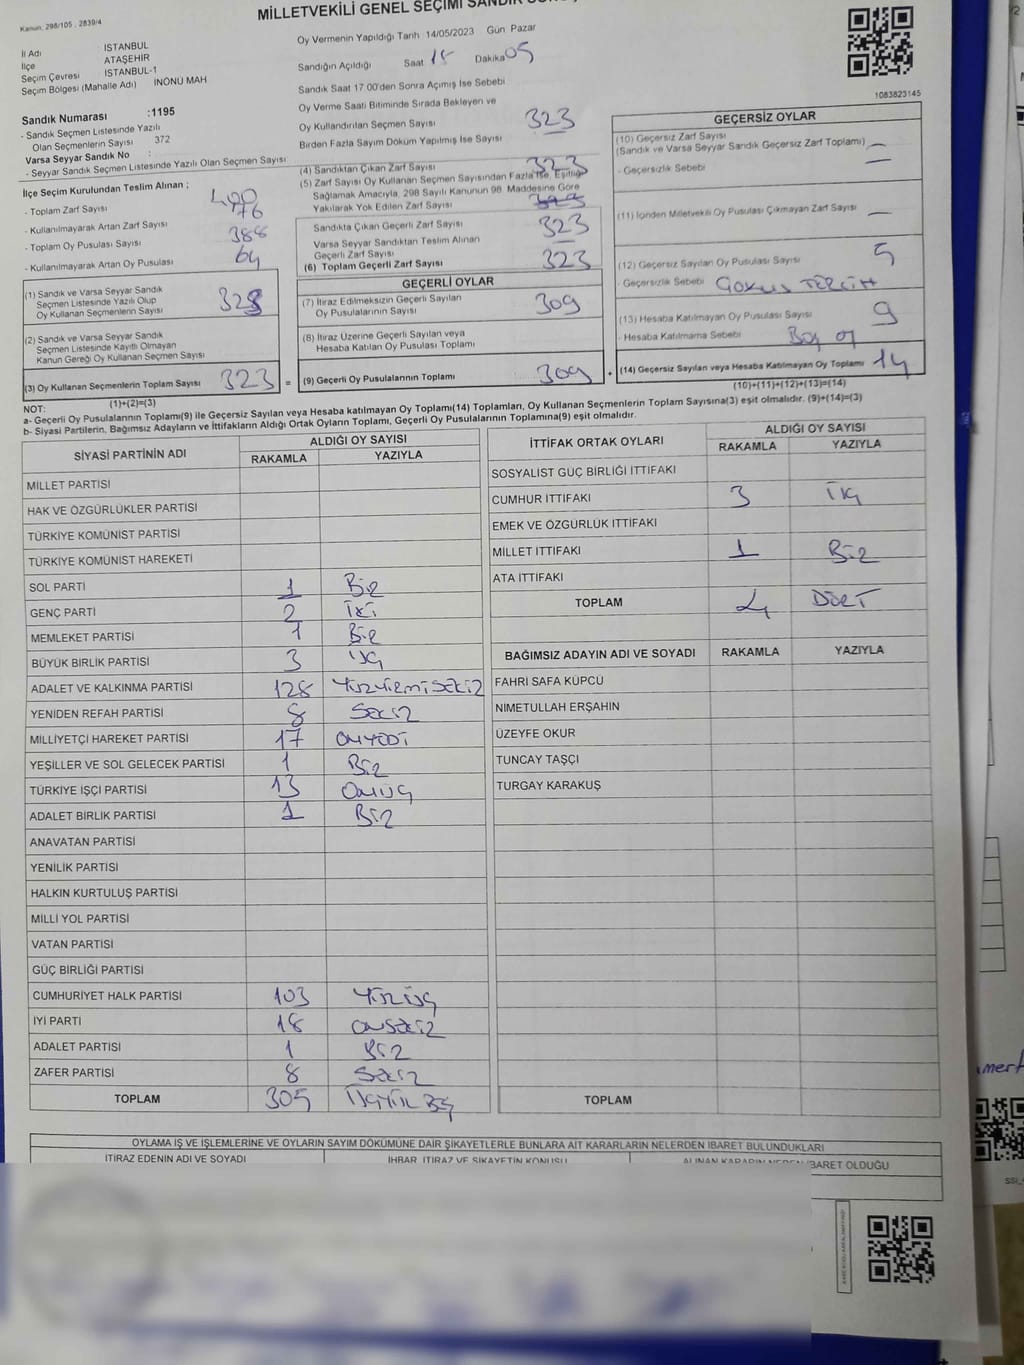 Kanun: 298/105 . 2839/4
MİLLETVEKİLİ GENEL SEÇİMİ SANDIK
İl Adı İSTANBUL
İlçe ATAŞEHİR
Seçim Çevresi İSTANBUL-1
Seçim Bölgesi (Mahalle Adı) İNÖNÜ MAH
Sandık Numarası :1195
- Sandık Seçmen Listesinde Yazılı
Olan Seçmenlerin Sayısı 372
Varsa Seyyar Sandık No :
- Seyyar Sandık Seçmen Listesinde Yazılı Olan Seçmen Sayısı
İlçe Seçim Kurulundan Teslim Alınan ;
- Toplam Zarf Sayısı 400
- Kullanılmayarak Artan Zarf Sayısı 76
- Toplam Oy Pusulası Sayısı 388
- Kullanılmayarak Artan Oy Pusulası 64
(1) Sandık ve Varsa Seyyar Sandık
Seçmen Listesinde Yazılı Olup
Oy Kullanan Seçmenlerin Sayısı 323
(2) Sandık ve Varsa Seyyar Sandık
Seçmen Listesinde Kayıtlı Olmayan
Kanun Gereği Oy Kullanan Seçmen Sayısı
(3) Oy Kullanan Seçmenlerin Toplam Sayısı 323 =
(1)+(2)=(3)
Oy Vermenin Yapıldığı Tarih 14/05/2023 Gün Pazar
Sandığın Açıldığı Saat 18 Dakika 05
Sandık Saat 17.00'den Sonra Açılmış İse Sebebi
Oy Verme Saati Bitiminde Sırada Bekleyen ve
Oy Kullandırılan Seçmen Sayısı 323
Birden Fazla Sayım Döküm Yapılmış İse Sayısı
(4) Sandıktan Çıkan Zarf Sayısı 323
(5) Zarf Sayısı Oy Kullanan Seçmen Sayısından Fazla İse, Eşitliği
Sağlamak Amacıyla, 298 Sayılı Kanunun 98. Maddesine Göre
Yakılarak Yok Edilen Zarf Sayısı
Sandıkta Çıkan Geçerli Zarf Sayısı 323
Varsa Seyyar Sandıktan Teslim Alınan
Geçerli Zarf Sayısı
(6) Toplam Geçerli Zarf Sayısı 323
GEÇERLİ OYLAR
(7) İtiraz Edilmeksizin Geçerli Sayılan
Oy Pusulalarının Sayısı 309
(8) İtiraz Üzerine Geçerli Sayılan veya
Hesaba Katılan Oy Pusulası Toplamı
(9) Geçerli Oy Pusulalarının Toplamı 309 +
1083823145
GEÇERSİZ OYLAR
(10) Geçersiz Zarf Sayısı
(Sandık ve Varsa Seyyar Sandık Geçersiz Zarf Toplamı) —
- Geçersizlik Sebebi —
(11) İçinden Milletvekili Oy Pusulası Çıkmayan Zarf Sayısı —
(12) Geçersiz Sayılan Oy Pusulası Sayısı 5
- Geçersizlik Sebebi ÇOKLU TERCİH
(13) Hesaba Katılmayan Oy Pusulası Sayısı 9
- Hesaba Katılmama Sebebi Boş oy
(14) Geçersiz Sayılan veya Hesaba Katılmayan Oy Toplamı 14
(10)+(11)+(12)+(13)=(14)
NOT:
a- Geçerli Oy Pusulalarının Toplamı(9) ile Geçersiz Sayılan veya Hesaba katılmayan Oy Toplamı(14) Toplamları, Oy Kullanan Seçmenlerin Toplam Sayısına(3) eşit olmalıdır. (9)+(14)=(3)
b- Siyasi Partilerin, Bağımsız Adayların ve İttifakların Aldığı Ortak Oyların Toplamı, Geçerli Oy Pusulalarının Toplamına(9) eşit olmalıdır.
SİYASİ PARTİNİN ADI ALDIĞI OY SAYISI
RAKAMLA YAZIYLA
MİLLET PARTİSİ
HAK VE ÖZGÜRLÜKLER PARTİSİ
TÜRKİYE KOMÜNİST PARTİSİ
TÜRKİYE KOMÜNİST HAREKETİ
SOL PARTİ 1 Bir
GENÇ PARTİ 2 İKİ
MEMLEKET PARTİSİ 1 Bir
BÜYÜK BİRLİK PARTİSİ 3 Üç
ADALET VE KALKINMA PARTİSİ 128 YÜZYİRMİSEKİZ
YENİDEN REFAH PARTİSİ 8 SEKİZ
MİLLİYETÇİ HAREKET PARTİSİ 17 ONYEDİ
YEŞİLLER VE SOL GELECEK PARTİSİ 1 Bir
TÜRKİYE İŞÇİ PARTİSİ 13 ONÜÇ
ADALET BİRLİK PARTİSİ 1 Bir
ANAVATAN PARTİSİ
YENİLİK PARTİSİ
HALKIN KURTULUŞ PARTİSİ
MİLLİ YOL PARTİSİ
VATAN PARTİSİ
GÜÇ BİRLİĞİ PARTİSİ
CUMHURİYET HALK PARTİSİ 103 YÜZÜÇ
İYİ PARTİ 18 ONSEKİZ
ADALET PARTİSİ 1 Bir
ZAFER PARTİSİ 8 SEKİZ
TOPLAM 305 ÜÇYÜZ BEŞ
İTTİFAK ORTAK OYLARI ALDIĞI OY SAYISI
RAKAMLA YAZIYLA
SOSYALİST GÜÇ BİRLİĞİ İTTİFAKI
CUMHUR İTTİFAKI 3 Üç
EMEK VE ÖZGÜRLÜK İTTİFAKI
MİLLET İTTİFAKI 1 Bir
ATA İTTİFAKI
TOPLAM 4 DÖRT
BAĞIMSIZ ADAYIN ADI VE SOYADI RAKAMLA YAZIYLA
FAHRİ SAFA KÜPCÜ
NİMETULLAH ERŞAHİN
ÜZEYFE OKUR
TUNCAY TAŞÇI
TURGAY KARAKUŞ
TOPLAM
OYLAMA İŞ VE İŞLEMLERİNE VE OYLARIN SAYIM DÖKÜMÜNE DAİR ŞİKAYETLERLE BUNLARA AİT KARARLARIN NELERDEN İBARET BULUNDUKLARI
İTİRAZ EDENİN ADI VE SOYADI İHBAR, İTİRAZ VE ŞİKAYETİN KONUSU ALINAN KARARIN NEDEN İBARET OLDUĞU